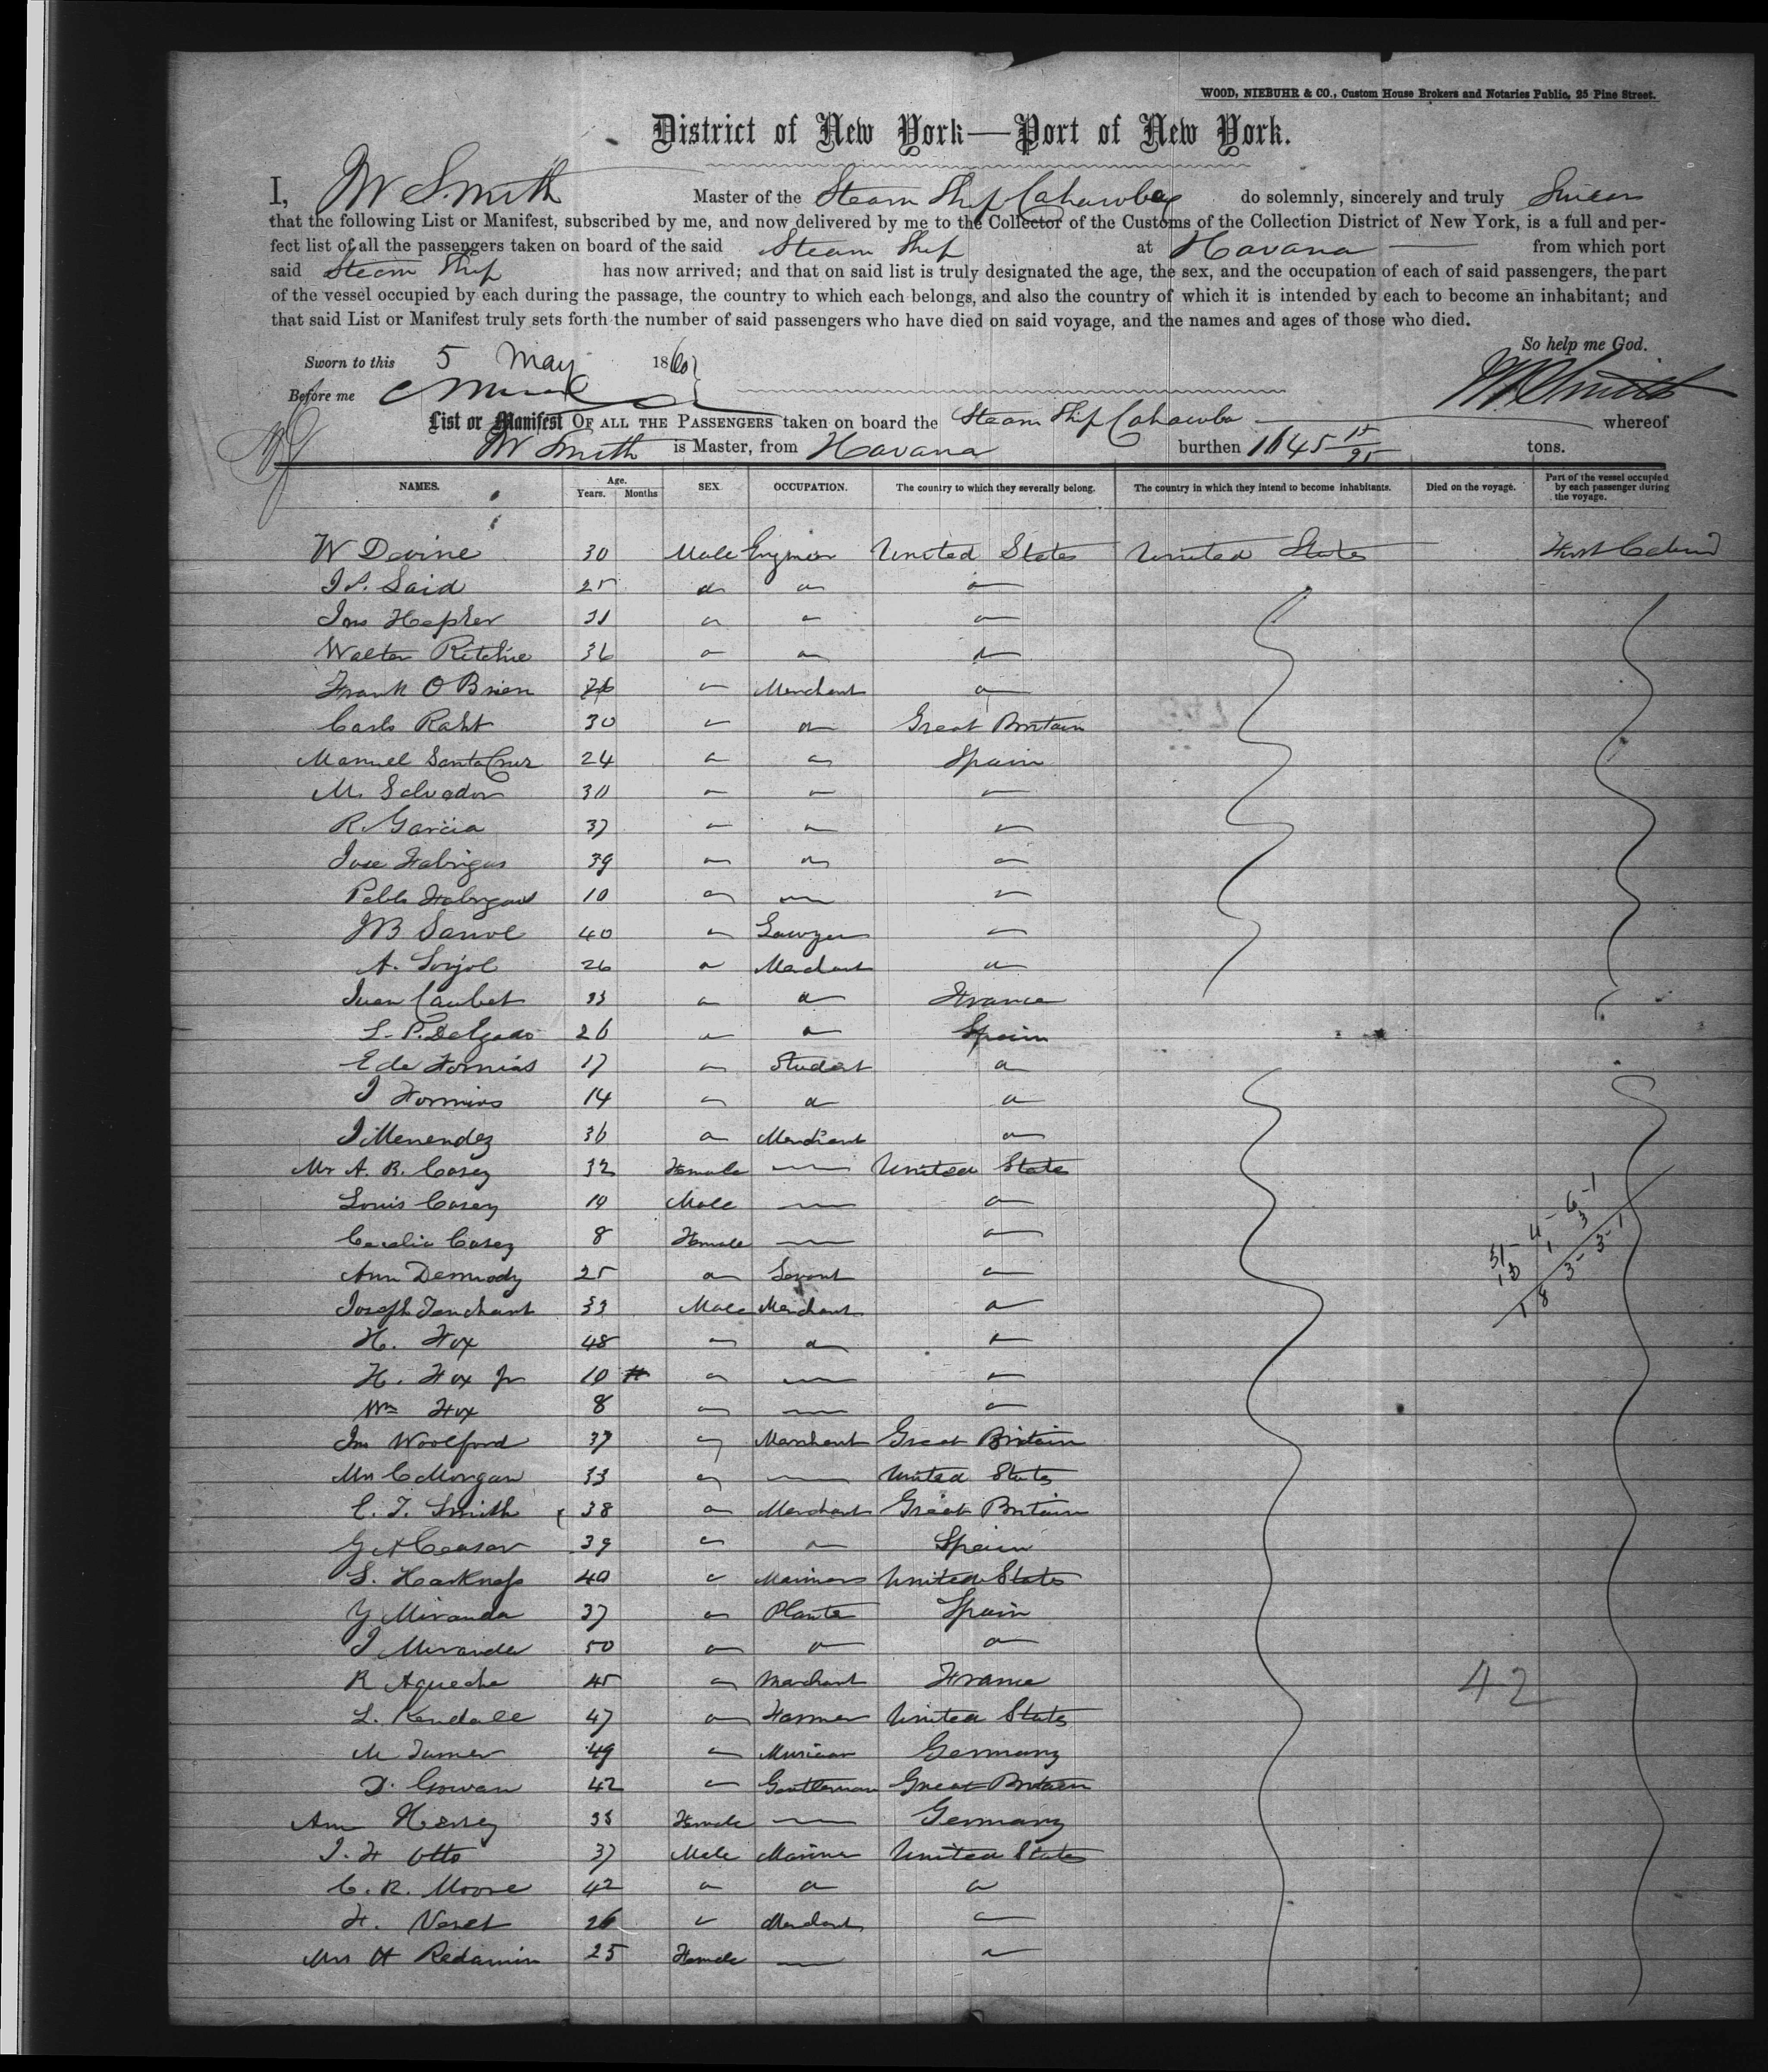 WOOD, NIEBUHR & CO., Custom House Brokers and Notaries Public, 25 Pine Street.
District of New York—Port of New York.
I, W Smith Master of the Steam Ship Cahawba do solemnly, sincerely and truly Swear
that the following List or Manifest, subscribed by me, and now delivered by me to the Collector of the Customs of the Collection District of New York, is a full and per-
fect list of all the passengers taken on board of the said Steam Ship at Havana from which port
said Steam Ship has now arrived; and that on said list is truly designated the age, the sex, and the occupation of each of said passengers, the part
of the vessel occupied by each during the passage, the country to which each belongs, and also the country of which it is intended by each to become an inhabitant; and
that said List or Manifest truly sets forth the number of said passengers who have died on said voyage, and the names and ages of those who died.
So help me God.
Sworn to this 5 May 1860
Before me
W Smith
List or Manifest OF ALL THE PASSENGERS taken on board the Steam Ship Cahawba whereof
W Smith is Master, from Havana burthen 1645 15/95 tons.
NAMES. Age. Years. Months SEX. OCCUPATION. The country to which they severally belong. The country in which they intend to become inhabitants. Died on the voyage. Part of the vessel occupied by each passenger during the voyage.
W Devine 30 Male Engineer United States United States First Cabin
J. P. Said 25 " " "
Jno Hepler " " "
Walter Ritchie 36 " " "
Frank O Brien 26 " Merchant "
Carlo Raht 30 " " Great Britain
Manuel Santa Cruz 24 " " Spain
M. Salvador 30 " " "
R. Garcia 37 " " "
Jose Fabrigas 39 " " "
Pablo Fabrigas 10 " — "
J B 40 " Lawyer "
A. 26 " Merchant "
Juan Caubet 33 " " France
L. P. Delgado 26 " " Spain
E de Fornias 17 " Student "
J Fornias 14 " " "
J Menendez 36 " Merchant "
Mrs A. R. Casey 32 Female — United States
Louis Casey 10 Male — "
Cecelia Casey 8 Female — "
Ann Dermody 25 " Servant "
Joseph Tenchant 33 Male Merchant "
H. Fox 48 " " "
H. Fox Jr 10 " — "
Wm Fox 8 " — "
Jno Woolford 37 " Merchant Great Britain
Mrs C Morgan 33 " — United States
C. T. Smith 38 " Merchant Great Britain
G A Ceasar 39 " " Spain
S. Harkness 40 " Mariners United States
Y Miranda 37 " Planter Spain
J Miranda 50 " " "
R Agueche 45 " Merchant France
L. Kendall 47 " Farmer United States
M Turner 49 " Musican Germany
D. Gowan 42 " Gentleman Great Britain
Ann Hersey 35 Female — Germany
J. F Otto 37 Male Mariner United States
C. R. Moore 42 " " "
F. Veret 26 " Merchant "
Mrs H Redamin 25 Female — "
42